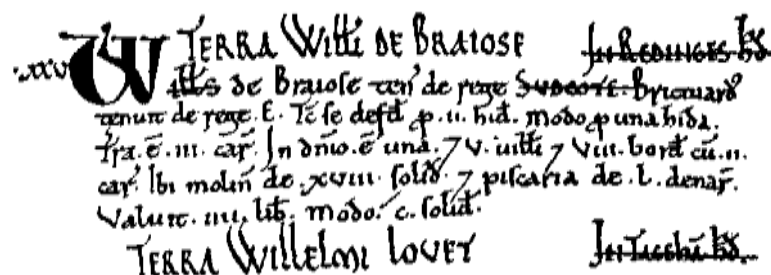 .xxv. TERRA Witti DE BRAIOSE In REDINGES hđ
Witts de Braiose ten' de rege SUDCOTE. Brictuard
tenuit de rege. E. Tc̄ se defđ p. ii. hiđ. modo p una hida.
Tr̄a. ē. iii. car̄. In dn̄io. ē una. 7 v. uitti 7 viii. borđ cū. ii.
car̄. Ibi molin̄ de. xviii. soliđ. 7 piscaria de. L. denar̄.
Valuit. iiii. lib̄. modo. c. soliđ.
TERRA WILLELMI LOVET